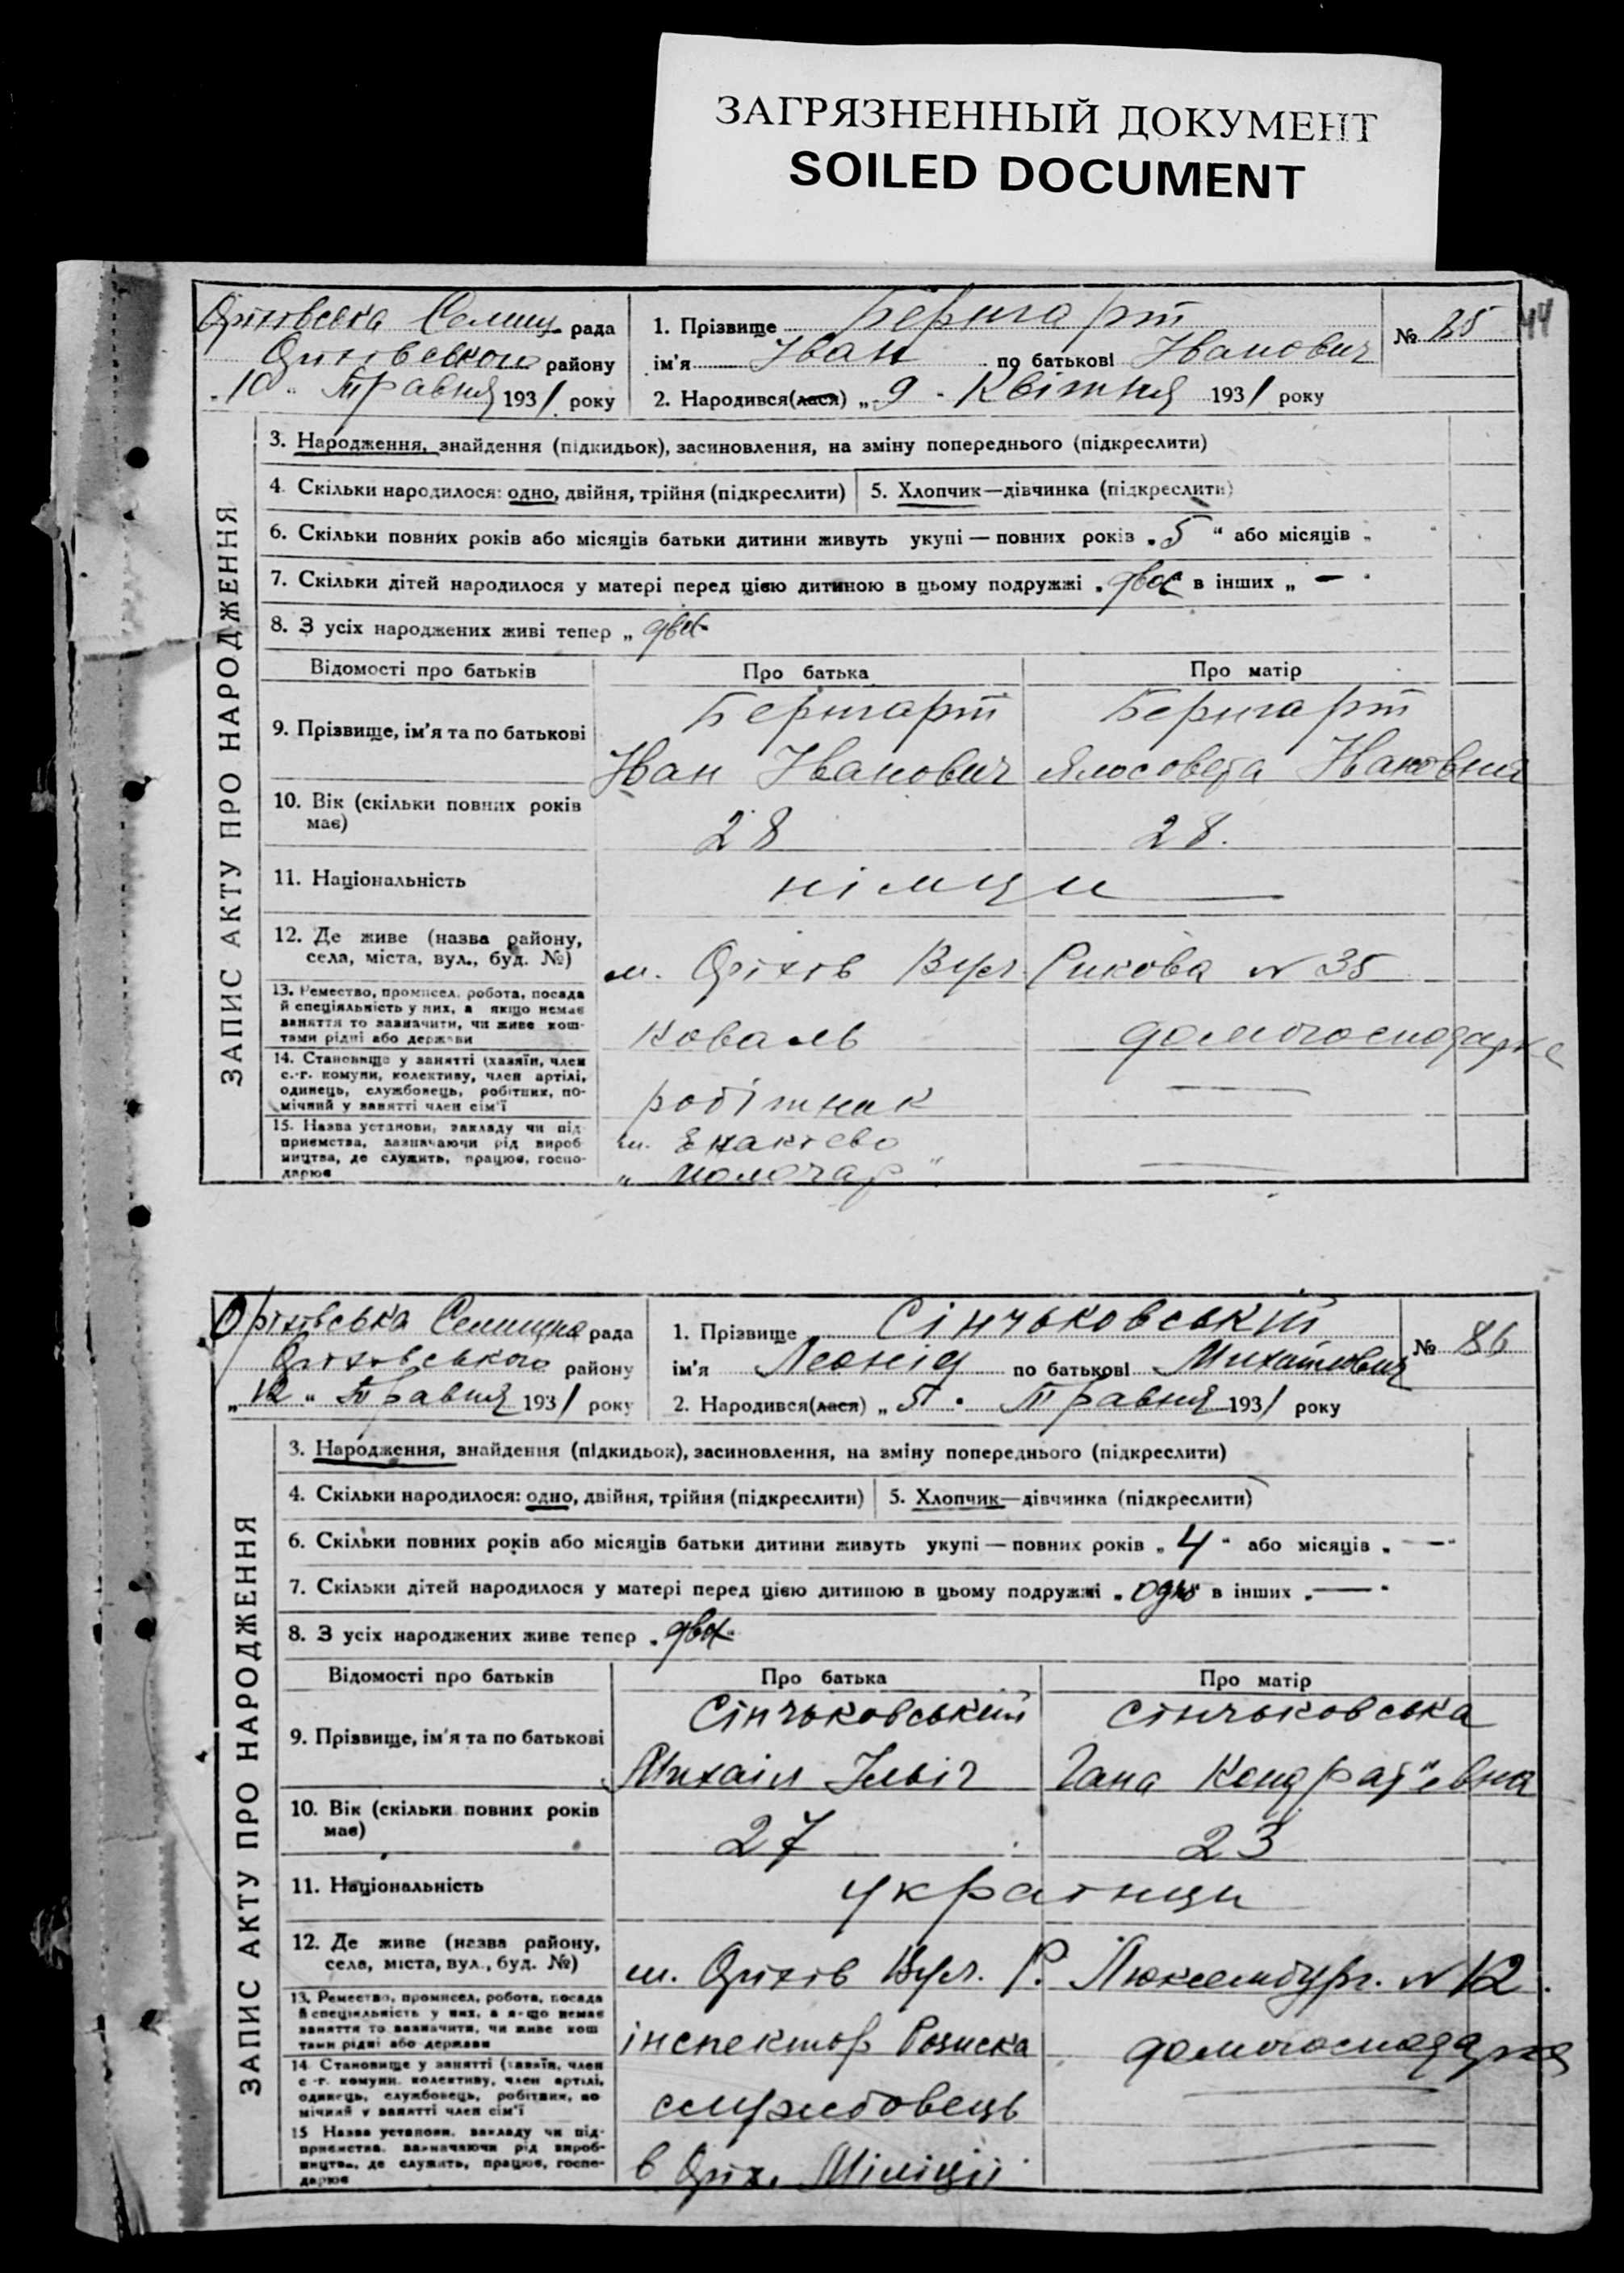 ЗАГРЯЗНЕННЫЙ ДОКУМЕНТ
SOILED DOCUMENT
44
Оріхівська Селищ. рада
Оріхівського району
„10“ Травня 1931 року
1. Прізвище Бернгарт
ім'я Іван по батькові Іванович
№ 85
2. Народився(лася) „9“ Квітня 1931 року
ЗАПИС АКТУ ПРО НАРОДЖЕННЯ
3. Народження, знайдення (підкидьок), засиновлення, на зміну попереднього (підкреслити)
4. Скільки народилося: одно, двійня, трійня (підкреслити)
5. Хлопчик—дівчинка (підкреслити)
6. Скільки повних років або місяців батьки дитини живуть укупі — повних років „5“ або місяців „
7. Скільки дітей народилося у матері перед цією дитиною в цьому подружжі „двоє в інших „ — “
8. З усіх народжених живі тепер „двоє“
Відомості про батьків
Про батька
Про матір
9. Прізвище, ім'я та по батькові
Бернгарт
Іван Іванович
Бернгарт
Ялосовета Івановна
10. Вік (скільки повних років
має)
28
28.
11. Національність
німци
12. Де живе (назва району,
села, міста, вул., буд. №)
м. Оріхів Вул. Рикова № 35
13. Ремество, промисел, робота, посада
й спеціяльність у них, а якщо немає
заняття то зазначити, чи живе кош-
тами рідні або держави
Коваль
домогосподарка
14. Становище у занятті (хазяїн, член
с.-г. комуни, колективу, член артілі,
одинець, службовець, робітник, по-
мічний у занятті член сім'ї
робітник
15. Назва установи, закладу чи під-
приємства, зазначаючи рід вироб-
ництва, де служить, працює, госпо-
дарює
Оріхівська Селищна рада
Оріховського району
„12“ Травня 1931 року
1. Прізвище Сінчьковський
ім'я Леонід по батькові Михайлович
№ 86
2. Народився(лася) „5“ Травня 1931 року
ЗАПИС АКТУ ПРО НАРОДЖЕННЯ
3. Народження, знайдення (підкидьок), засиновлення, на зміну попереднього (підкреслити)
4. Скільки народилося: одно, двійня, трійня (підкреслити)
5. Хлопчик—дівчинка (підкреслити)
6. Скільки повних років або місяців батьки дитини живуть укупі — повних років „4“ або місяців „—“
7. Скільки дітей народилося у матері перед цією дитиною в цьому подружжі „одно“ в інших „—“
8. З усіх народжених живе тепер „двоє“
Відомості про батьків
Про батька
Про матір
9. Прізвище, ім'я та по батькові
Сінчьковський
Михаіл Ільіч
Сінчьковська
Гана Кондрат"євна
10. Вік (скільки повних років
має)
27
23
11. Національність
українци
12. Де живе (назва району,
села, міста, вул., буд. №)
м. Оріхів Вул. Р. Люксембург. № 12.
13. Ремество, промисел, робота, посада
й спеціяльність у них, а якщо немає
заняття то зазначити, чи живе кош
тами рідні або держави
інспектор Розиска
домогосподарка
14 Становище у занятті (хазяїн, член
с.-г. комуни, колективу, член артілі,
одинець, службовець, робітник, по
мічний у занятті член сім'ї
службовець
15 Назва установи, закладу чи під-
приємства, зазначаючи рід вироб-
ництва, де служить, працює, госпо-
дарює
в Оріх. Міліції